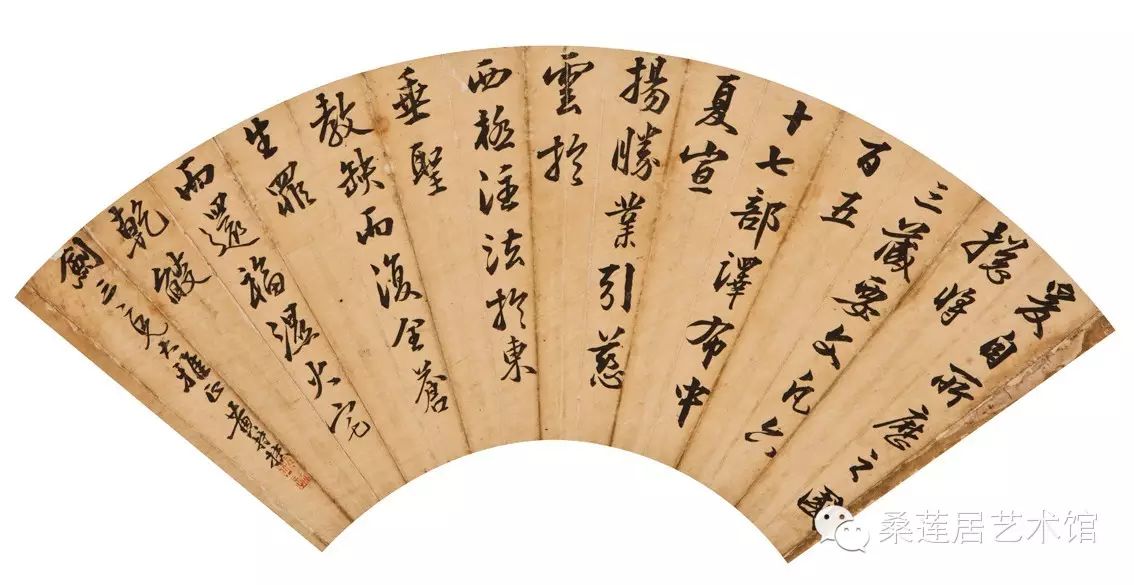 爰自所歷之國
摠將
三藏要文凡六
百五
十七部譯布中
夏宣
揚勝業引慈
雲於
西極注法於東
垂聖
教缺而復全蒼
生罪
而還福濕火宅
乾燄
劍三兄大雅正 黃
桑莲居艺术馆